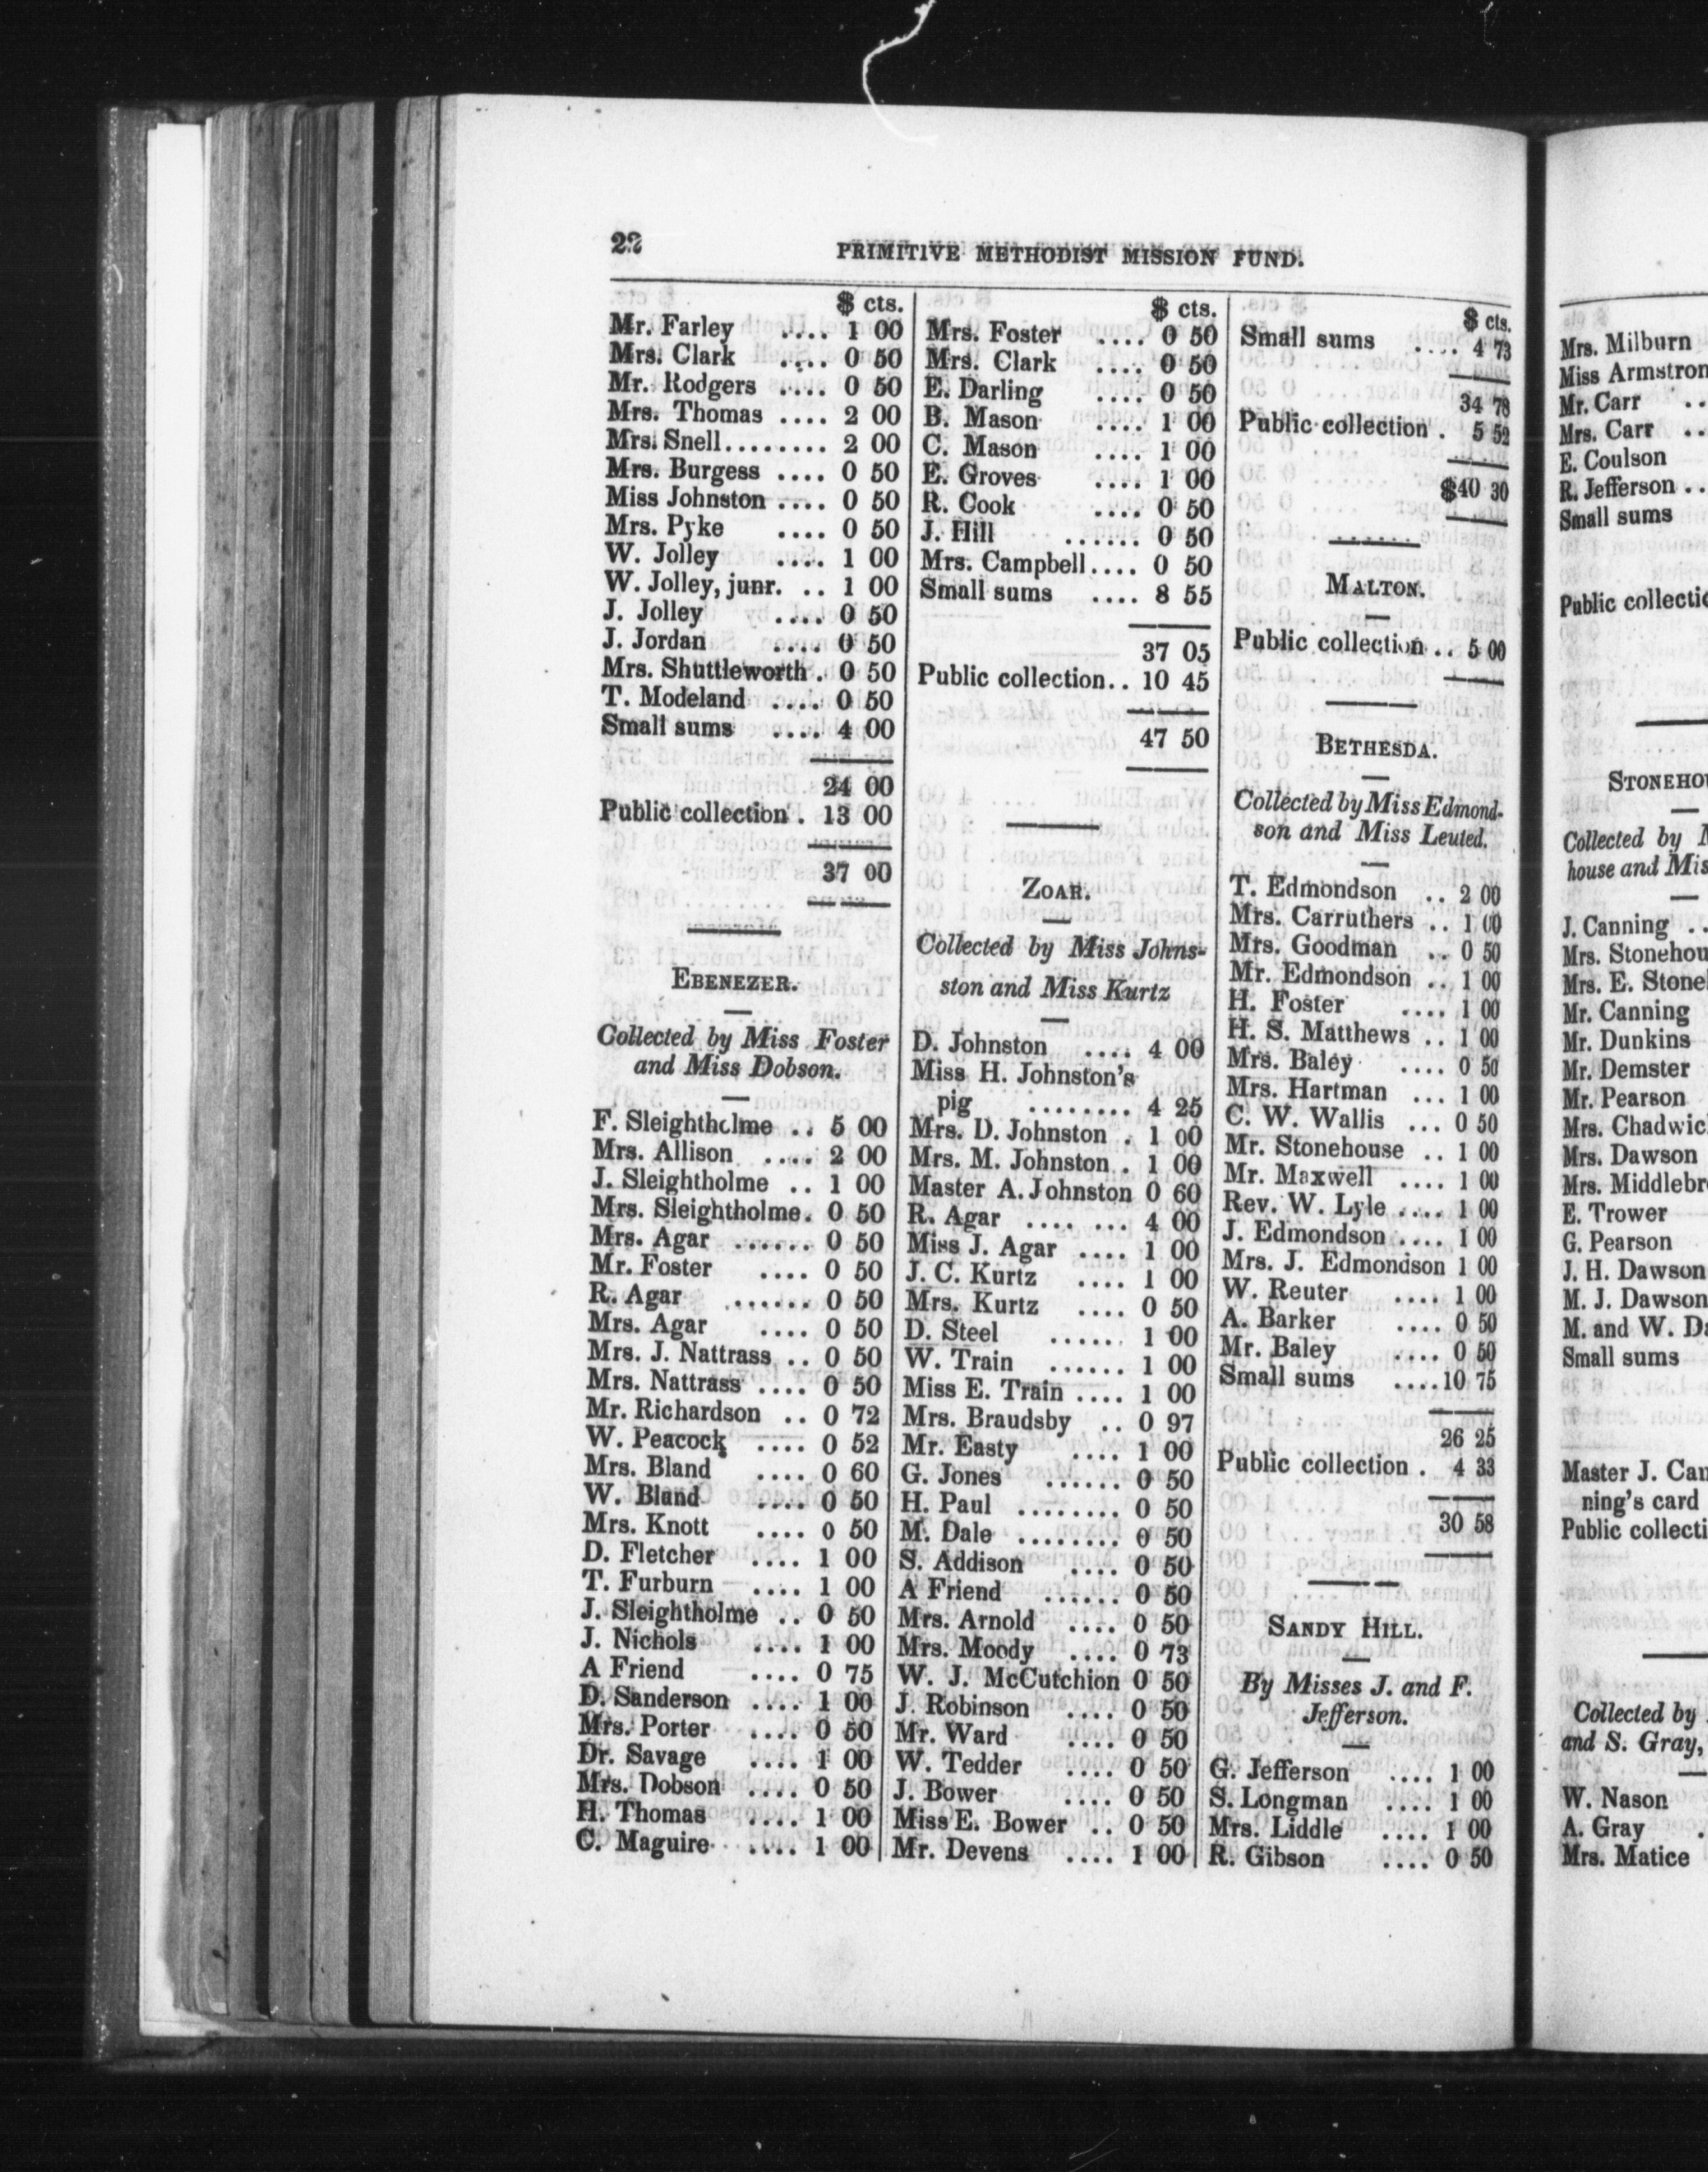 22
PRIMITIVE METHODIST MISSION FUND.
$ cts.
Mr. Farley .... 1 00
Mrs. Clark .... 0 50
Mr. Rodgers .... 0 50
Mrs. Thomas .... 2 00
Mrs. Snell........ 2 00
Mrs. Burgess .... 0 50
Miss Johnston .... 0 50
Mrs. Pyke .... 0 50
W. Jolley .... 1 00
W. Jolley, junr. .. 1 00
J. Jolley .... 0 50
J. Jordan .... 0 50
Mrs. Shuttleworth . 0 50
T. Modeland .... 0 50
Small sums .... 4 00
24 00
Public collection . 13 00
37 00
EBENEZER.
Collected by Miss Foster
and Miss Dobson.
F. Sleightholme .. 5 00
Mrs. Allison .... 2 00
J. Sleightholme .. 1 00
Mrs. Sleightholme. 0 50
Mrs. Agar ...... 0 50
Mr. Foster .... 0 50
R. Agar ...... 0 50
Mrs. Agar .... 0 50
Mrs. J. Nattrass .. 0 50
Mrs. Nattrass .... 0 50
Mr. Richardson .. 0 72
W. Peacock .... 0 52
Mrs. Bland .... 0 60
W. Bland .... 0 50
Mrs. Knott .... 0 50
D. Fletcher .... 1 00
T. Furburn .... 1 00
J. Sleightholme .. 0 50
J. Nichols .... 1 00
A Friend .... 0 75
D. Sanderson .... 1 00
Mrs. Porter .... 0 50
Dr. Savage .... 1 00
Mrs. Dobson .... 0 50
H. Thomas .... 1 00
C. Maguire .... 1 00
$ cts.
Mrs. Foster .... 0 50
Mrs. Clark .... 0 50
E. Darling .... 0 50
B. Mason .... 1 00
C. Mason .... 1 00
E. Groves .... 1 00
R. Cook .... 0 50
J. Hill ...... 0 50
Mrs. Campbell.... 0 50
Small sums .... 8 55
37 05
Public collection.. 10 45
47 50
ZOAR.
Collected by Miss Johns-
ston and Miss Kurtz
D. Johnston .... 4 00
Miss H. Johnston's
pig ........ 4 25
Mrs. D. Johnston . 1 00
Mrs. M. Johnston . 1 00
Master A. Johnston 0 60
R. Agar .... ... 4 00
Miss J. Agar .... 1 00
J. C. Kurtz .... 1 00
Mrs. Kurtz .... 0 50
D. Steel ...... 1 00
W. Train ...... 1 00
Miss E. Train .... 1 00
Mrs. Braudsby .. 0 97
Mr. Easty .... 1 00
G. Jones ...... 0 50
H. Paul ........ 0 50
M. Dale ........ 0 50
S. Addison .... 0 50
A Friend ...... 0 50
Mrs. Arnold .... 0 50
Mrs. Moody .... 0 73
W. J. McCutchion 0 50
J. Robinson .... 0 50
Mr. Ward .... 0 50
W. Tedder .... 0 50
J. Bower .... 0 50
Miss E. Bower .. 0 50
Mr. Devens .... 1 00
$ cts.
Small sums .... 4 73
34 78
Public collection . 5 52
$40 30
MALTON.
Public collection .. 5 00
BETHESDA.
Collected by Miss Edmond-
son and Miss Leuted.
T. Edmondson .. 2 00
Mrs. Carruthers .. 1 00
Mrs. Goodman .. 0 50
Mr. Edmondson .. 1 00
H. Foster .... 1 00
H. S. Matthews .. 1 00
Mrs. Baley .... 0 50
Mrs. Hartman ... 1 00
C. W. Wallis ... 0 50
Mr. Stonehouse .. 1 00
Mr. Maxwell .... 1 00
Rev. W. Lyle .... 1 00
J. Edmondson .... 1 00
Mrs. J. Edmondson 1 00
W. Reuter .... 1 00
A. Barker .... 0 50
Mr. Baley .... 0 50
Small sums ....10 75
26 25
Public collection . 4 33
30 58
SANDY HILL.
By Misses J. and F.
Jefferson.
G. Jefferson .... 1 00
S. Longman .... 1 00
Mrs. Liddle .... 1 00
R. Gibson .... 0 50
Mrs. Milburn
Miss Armstron
Mr. Carr ..
Mrs. Carr ..
E. Coulson
R. Jefferson ..
Small sums
Public collecti
STONEHO
Collected by
house and Mis
J. Canning ..
Mrs. Stonehou
Mrs. E. Stone
Mr. Canning
Mr. Dunkins
Mr. Demster
Mr. Pearson
Mrs. Chadwic
Mrs. Dawson
Mrs. Middlebr
E. Trower
G. Pearson
J. H. Dawson
M. J. Dawson
M. and W. Da
Small sums
Master J. Can
ning's card
Public collecti
Collected by
and S. Gray,
W. Nason
A. Gray .
Mrs. Matice